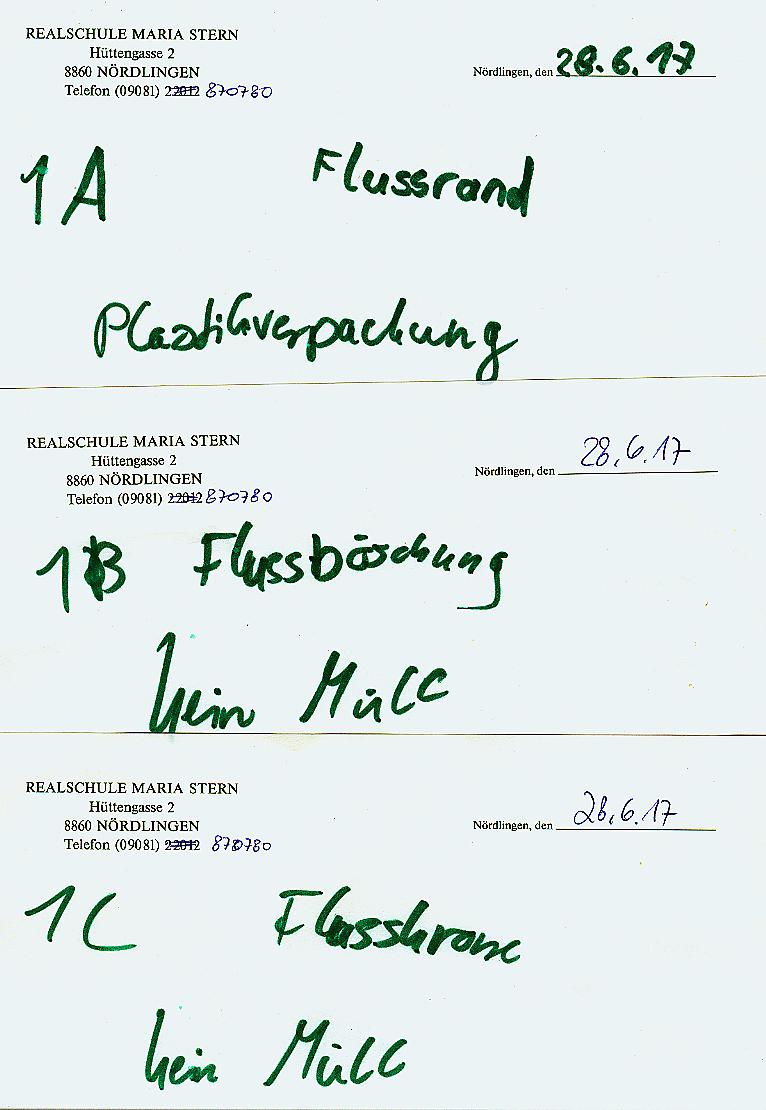 REALSCHULE MARIA STERN
Hüttengasse 2
8860 NÖRDLINGEN
Telefon (09081) 22012 870780
Nördlingen, den 28.6.17
1A Flussrand
Plastikverpackung
REALSCHULE MARIA STERN
Hüttengasse 2
8860 NÖRDLINGEN
Telefon (09081) 22012 870780
Nördlingen, den 28.6.17
1B Flussböschung
kein Müll
REALSCHULE MARIA STERN
Hüttengasse 2
8860 NÖRDLINGEN
Telefon (09081) 22012 870780
Nördlingen, den 28.6.17
1C Flusskrone
kein Müll